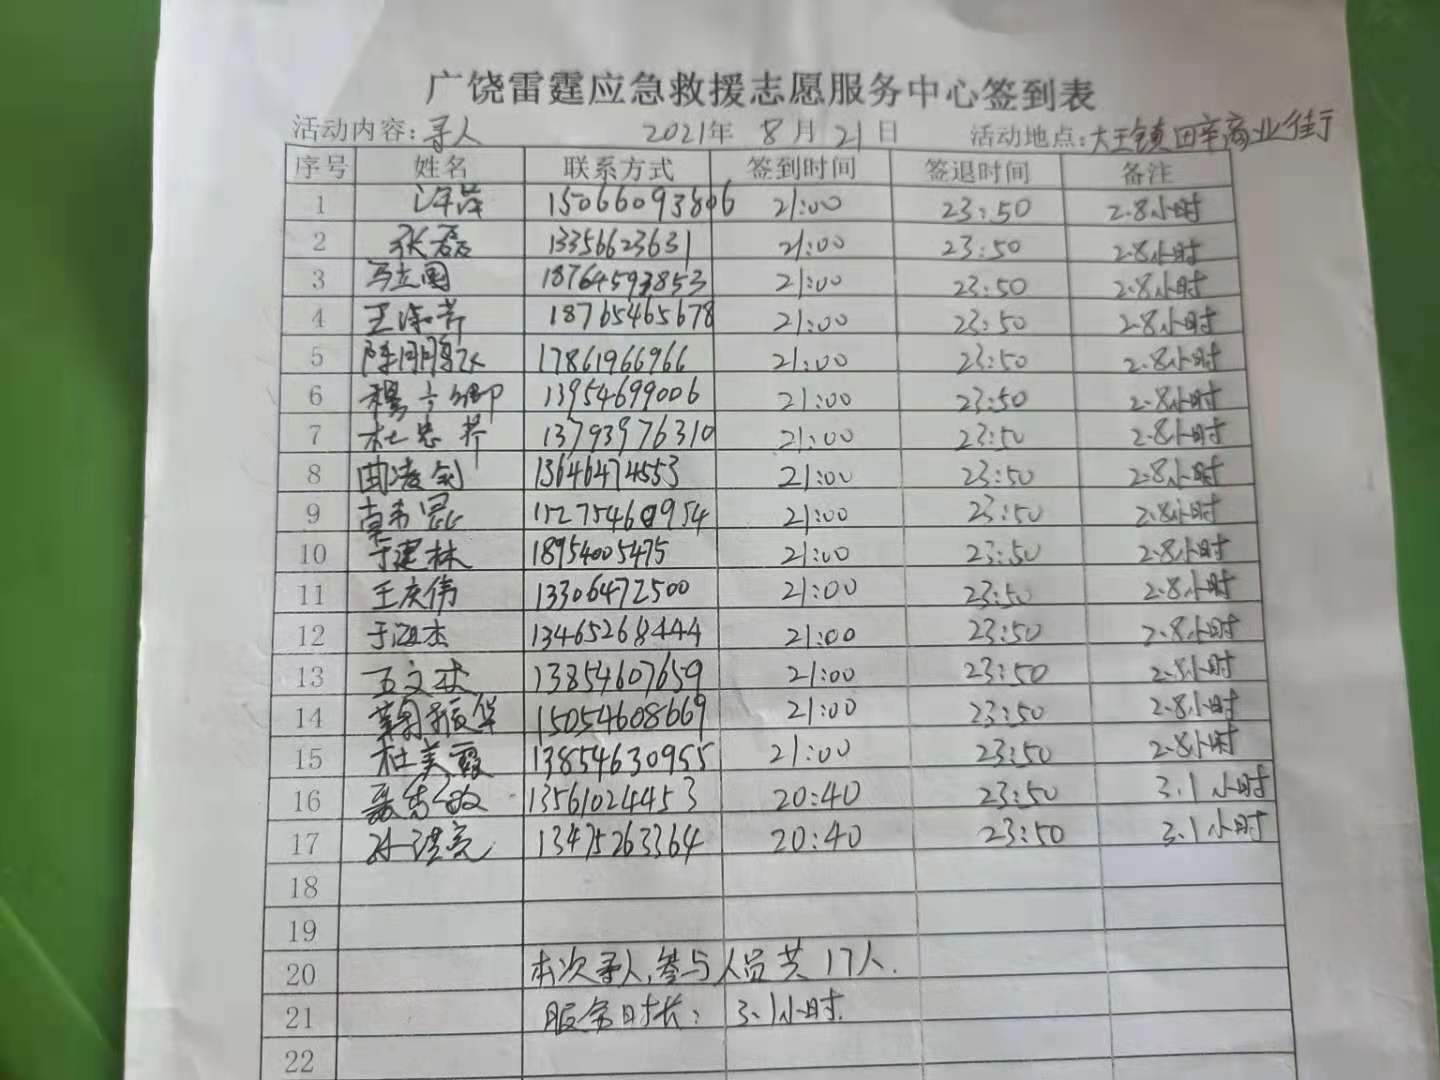 广饶雷霆应急救援志愿服务中心签到表
活动内容:寻人 2021年 8月21日 活动地点:大王镇田辛商业街
序号 姓名 联系方式 签到时间 签退时间 备注
1 许萍 15066093806 21:00 23:50 2.8小时
2 张磊 13356623631 21:00 23:50 2.8小时
3 马立国 18764593853 21:00 23:50 2.8小时
4 王 18765465678 21:00 23:50 2.8小时
5 陈鹏飞 17861966966 21:00 23:50 2.8小时
6 13954699006 21:00 23:50 2.8小时
7 杜忠 13793976310 21:00 23:50 2.8小时
8 曲凌剑 13646474553 21:00 23:50 2.8小时
9 15275460954 21:00 23:50 2.8小时
10 于建林 18954005475 21:00 23:50 2.8小时
11 王庆伟 13306472500 21:00 23:50 2.8小时
12 于海杰 13465268444 21:00 23:50 2.8小时
13 王文杰 13854607659 21:00 23:50 2.8小时
14 振华 15054608669 21:00 23:50 2.8小时
15 杜美霞 13854630955 21:00 23:50 2.8小时
16 聂秀敏 13561024453 20:40 23:50 3.1小时
17 孙洪亮 13475263364 20:40 23:50 3.1小时
18
19
20 本次寻人,参与人员共17人.
21 服务时长: 3.1小时.
22